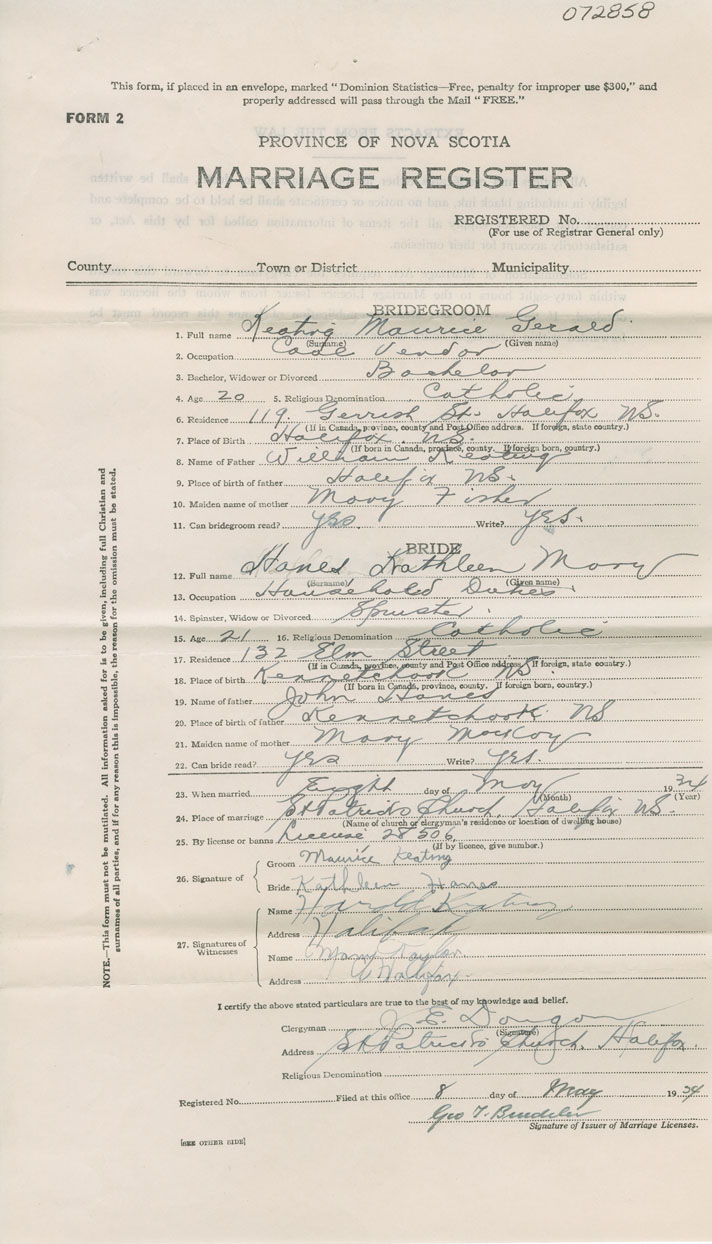 072858
This form, if placed in an envelope, marked "Dominion Statistics—Free, penalty for improper use $300," and
properly addressed will pass through the Mail "FREE."
FORM 2
PROVINCE OF NOVA SCOTIA
MARRIAGE REGISTER
REGISTERED No.
(For use of Registrar General only)
County Town or District Municipality
BRIDEGROOM
1. Full name Keating Maurice Gerald
(Surname) (Given name)
2. Occupation Vendor
3. Bachelor, Widower or Divorced Bachelor
4. Age 20 5. Religious Denomination Catholic
6. Residence 119 Gerrish St. Halifax NS.
(If in Canada, province, county and Post Office address. If foreign, state country.)
7. Place of Birth Halifax NS.
(If born in Canada, province, county. If foreign born, country.)
8. Name of Father William Keating
9. Place of birth of father Halifix NS.
10. Maiden name of mother Mary Fisher
11. Can bridegroom read? yes Write? yes.
BRIDE
12. Full name Hanes Kathleen Mary
(Surname) (Given name)
13. Occupation Household Duties
14. Spinster, Widow or Divorced Spinster
15. Age 21 16. Religious Denomination Catholic
17. Residence 132 Elm Street
(If in Canada, province, county and Post Office address. If foreign, state country.)
18. Place of birth Kennetchook NS.
(If born in Canada, province, county. If foreign born, country.)
19. Name of father John Hanes
20. Place of birth of father Kennetchook NS
21. Maiden name of mother Mary MacKoy
22. Can bride read? yes Write? yes.
23. When married Eight day of May 1934
(Month) (Year)
24. Place of marriage St Patricks Church, Halifax NS.
(Name of church or clergyman's residence or location of dwelling house)
25. By license or banns License 28506
(If by licence, give number.)
26. Signature of
Groom Maurice Keating
Bride Kathleen Hanes
27. Signatures of Witnesses
Name Harold Keating
Address Halifax
Name Mary Taylor
Address Halifax.
I certify the above stated particulars are true to the best of my knowledge and belief.
Clergyman J. E.
(Signature)
Address St Patricks Church, Halifax.
Religious Denomination
Registered No. Filed at this office 8 day of May 1934
Geo T.
Signature of Issuer of Marriage Licenses.
[SEE OTHER SIDE]
NOTE.—This form must not be mutilated. All information asked for is to be given, including full Christian and
surnames of all parties, and if for any reason this is impossible, the reason for the omission must be stated.